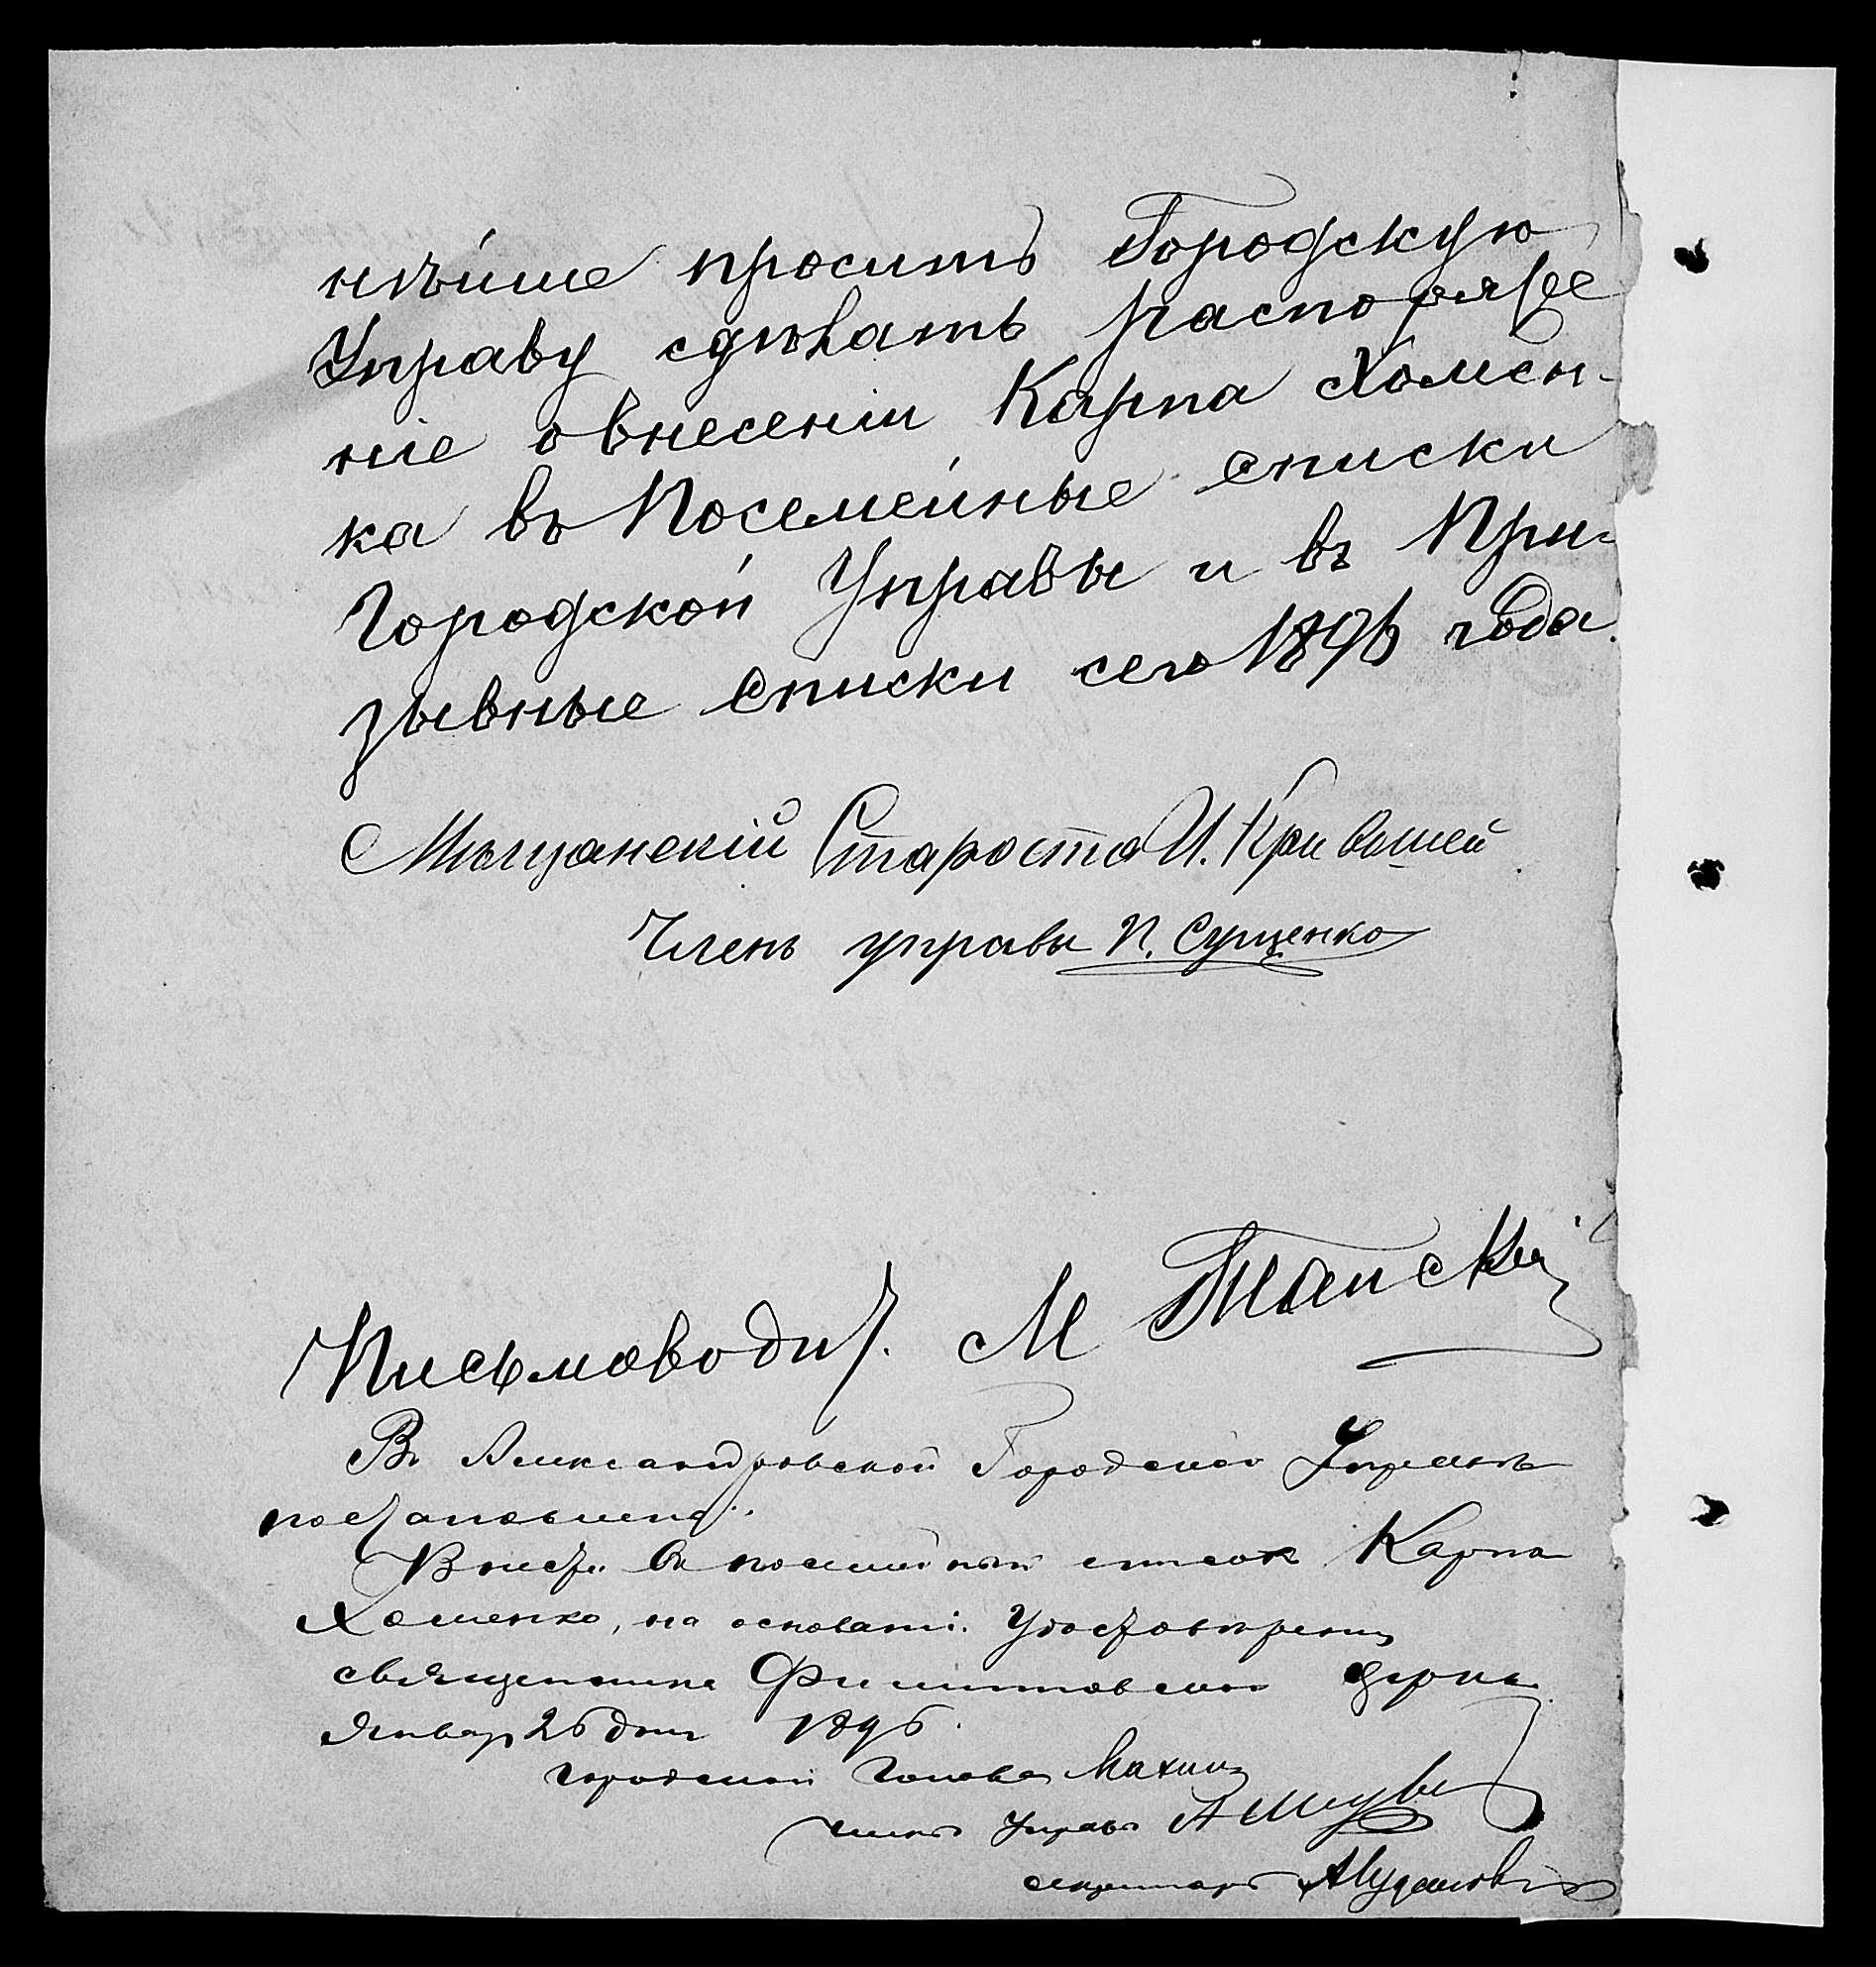 нѣйше проситъ Городскую
Управу сдѣлать распоряже
ніе о внесеніи Карпа Хомен-
ка въ Посемейные списки
Городской Управы и въ При-
зывные списки сего 1896 года.
Мѣщанскій Староста И. Кривошей
Членъ управы П. Сущенко
Письмоводит. М
Въ Александровской Городской Управѣ
постановлено:
Внести въ посемейный списокъ Карпа
Хоменко, на основаніи удостовѣренія
священника церкви.
Января 26 дня 1896.
Городской Голова Махинъ
Членъ Управы
Секретарь